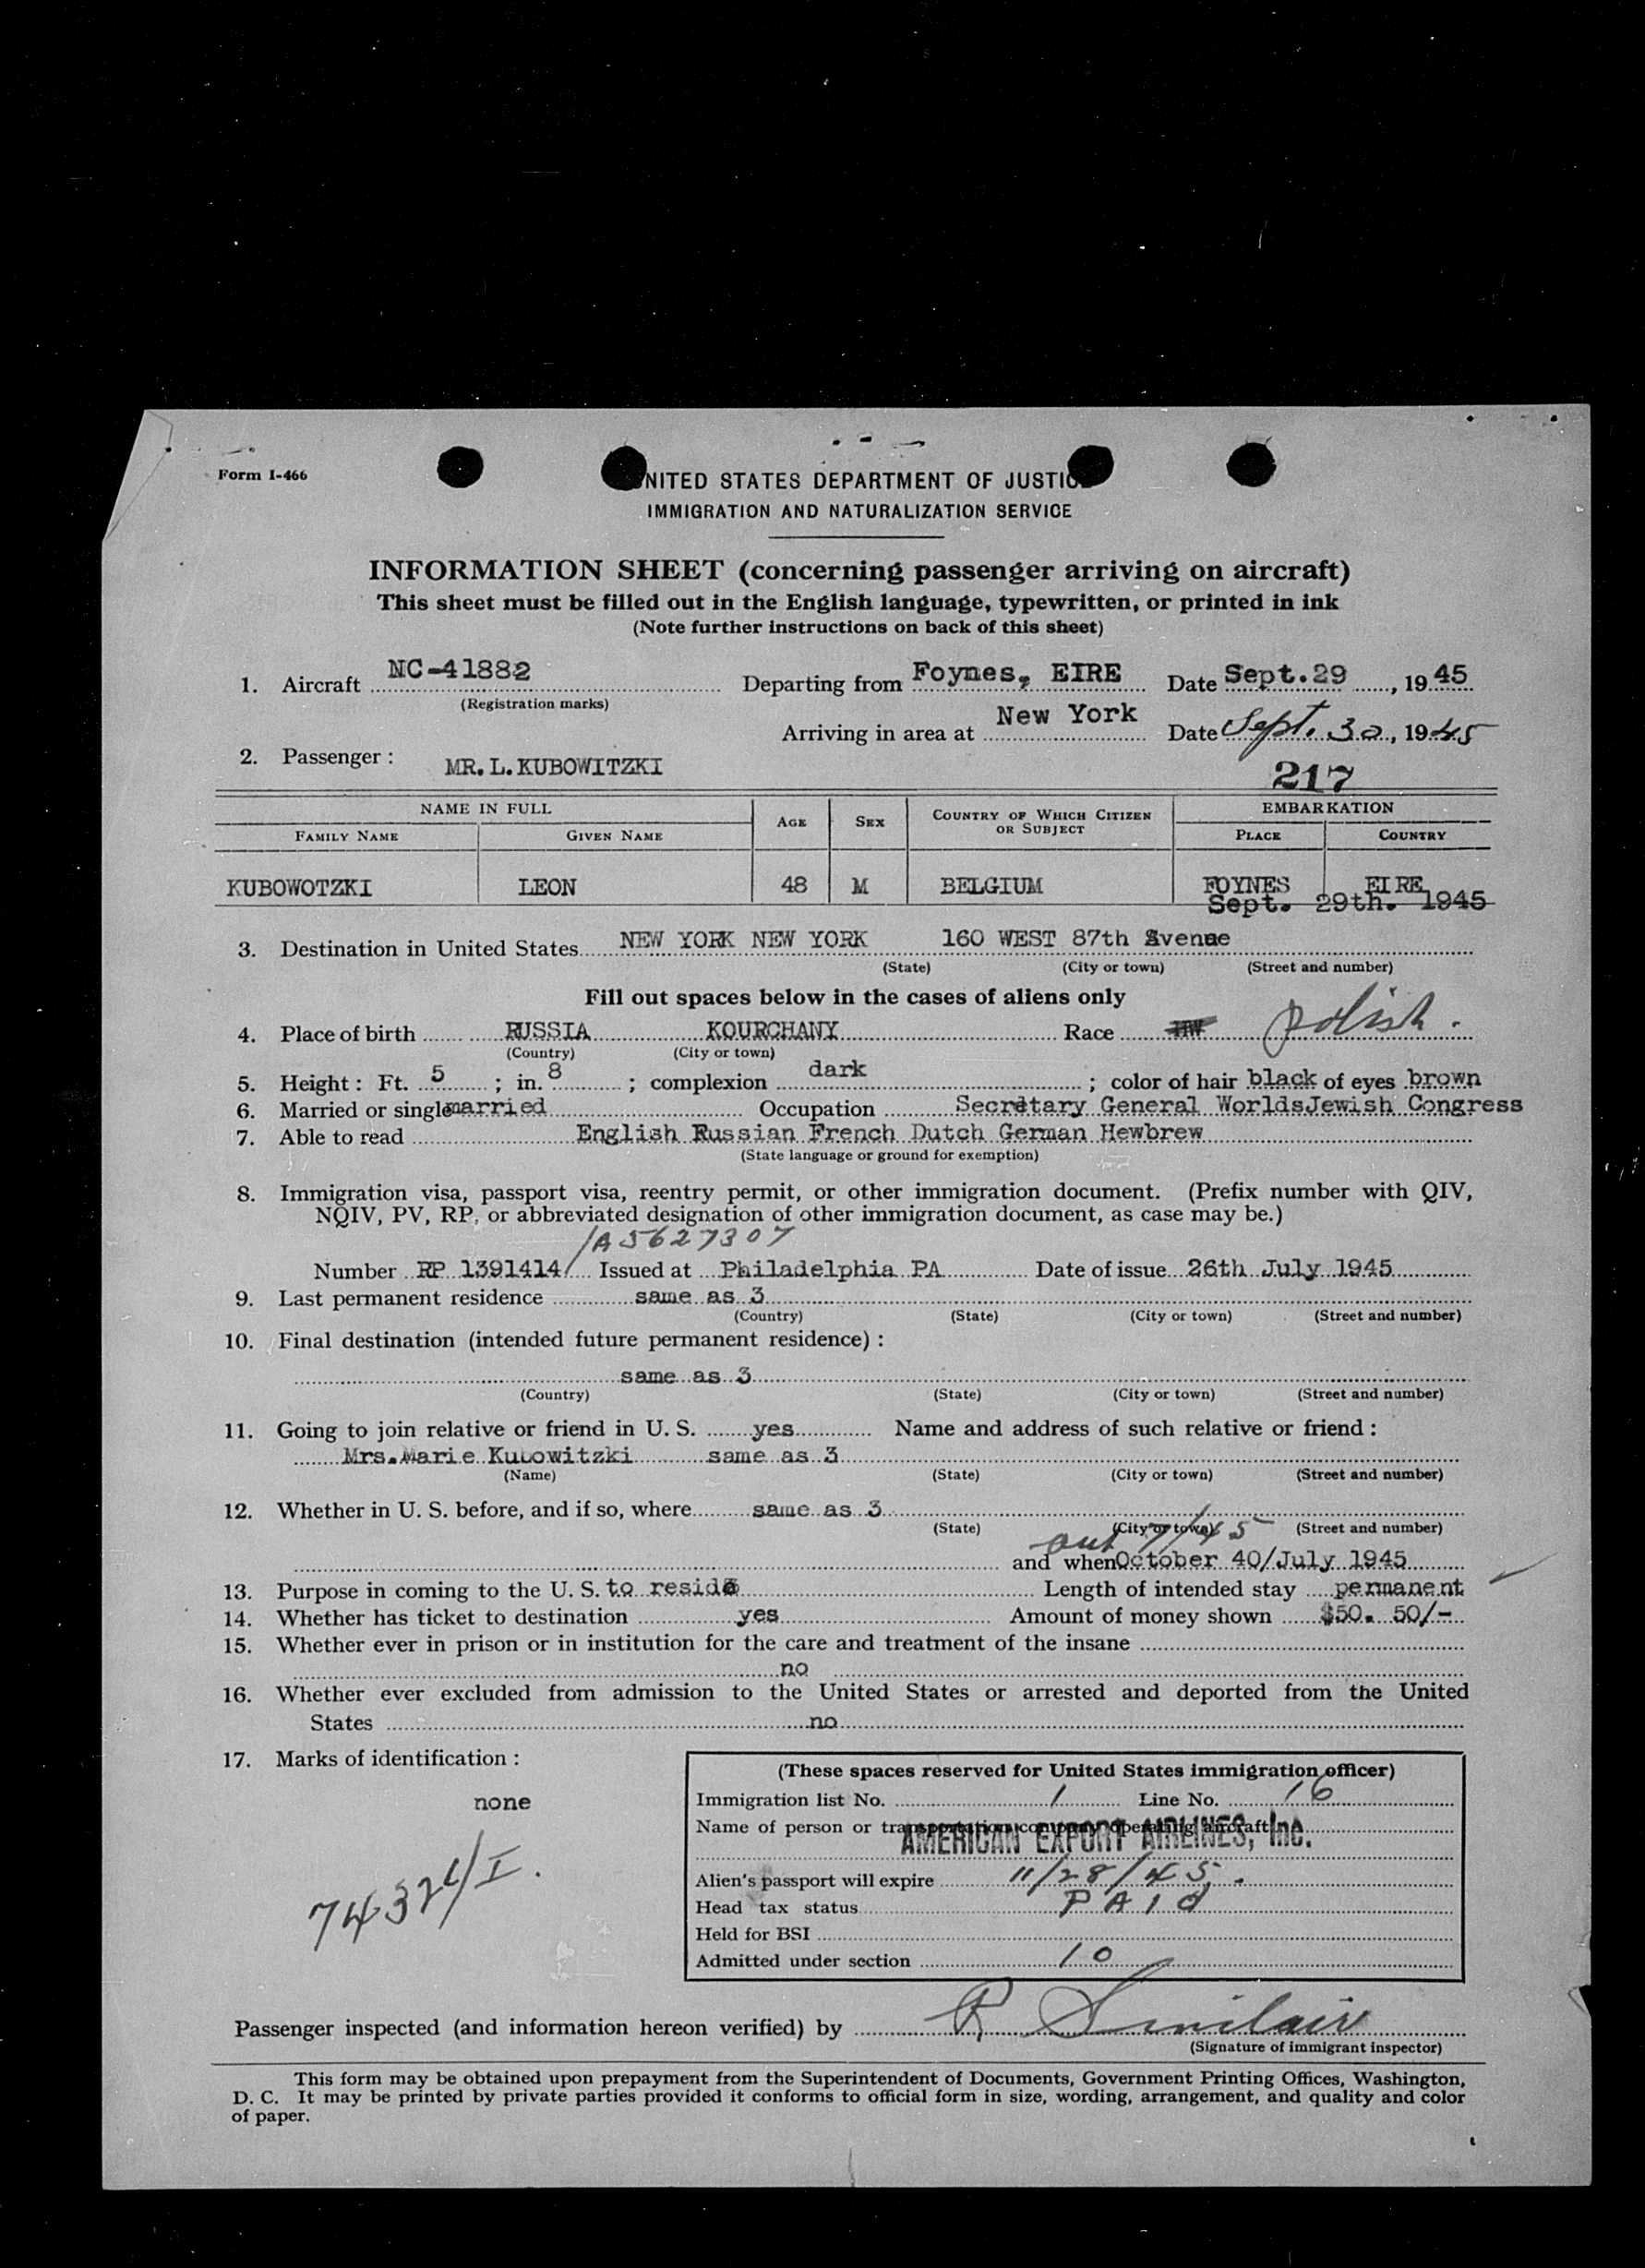 Form I-466
UNITED STATES DEPARTMENT OF JUSTICE
IMMIGRATION AND NATURALIZATION SERVICE
INFORMATION SHEET (concerning passenger arriving on aircraft)
This sheet must be filled out in the English language, typewritten, or printed in ink
(Note further instructions on back of this sheet)
1. Aircraft NC-41882 Departing from Foynes, EIRE Date Sept.29, 1945
(Registration marks)
Arriving in area at New York Date Sept. 30, 1945
2. Passenger: MR.L.KUBOWITZKI 217
NAME IN FULL AGE SEX COUNTRY OF WHICH CITIZEN OR SUBJECT EMBARKATION
FAMILY NAME GIVEN NAME PLACE COUNTRY
KUBOWOTZKI LEON 48 M BELGIUM FOYNES EIRE
Sept. 29th. 1945
3. Destination in United States NEW YORK NEW YORK 160 WEST 87th Avenue
(State) (City or town) (Street and number)
Fill out spaces below in the cases of aliens only
4. Place of birth RUSSIA KOURCHANY Race polish.
(Country) (City or town)
5. Height: Ft. 5; in. 8; complexion dark; color of hair black of eyes brown
6. Married or single married Occupation Secretary General WorldsJewish Congress
7. Able to read English Russian French Dutch German Hewbrew
(State language or ground for exemption)
8. Immigration visa, passport visa, reentry permit, or other immigration document. (Prefix number with QIV,
NQIV, PV, RP, or abbreviated designation of other immigration document, as case may be.)
/A5627307
Number RP 1391414/ Issued at Philadelphia PA Date of issue 26th July 1945
9. Last permanent residence same as 3
(Country) (State) (City or town) (Street and number)
10. Final destination (intended future permanent residence):
same as 3
(Country) (State) (City or town) (Street and number)
11. Going to join relative or friend in U. S. yes Name and address of such relative or friend:
Mrs.Marie Kubowitzki same as 3
(Name) (State) (City or town) (Street and number)
12. Whether in U. S. before, and if so, where same as 3
(State) (City or town) (Street and number)
out 7/45
and when October 40/July 1945
13. Purpose in coming to the U. S. to reside Length of intended stay permanent
14. Whether has ticket to destination yes Amount of money shown $50. 50/-
15. Whether ever in prison or in institution for the care and treatment of the insane
no
16. Whether ever excluded from admission to the United States or arrested and deported from the United
States no
17. Marks of identification:
none
(These spaces reserved for United States immigration officer)
Immigration list No. 1 Line No. 16
Name of person or transportation company operating aircraft
AMERICAN EXPORT AIRLINES, Inc.
Alien's passport will expire 11/28/45.
Head tax status PAId
Held for BSI
Admitted under section 10
Passenger inspected (and information hereon verified) by R Sinclair
(Signature of immigrant inspector)
This form may be obtained upon prepayment from the Superintendent of Documents, Government Printing Offices, Washington,
D. C. It may be printed by private parties provided it conforms to official form in size, wording, arrangement, and quality and color
of paper.